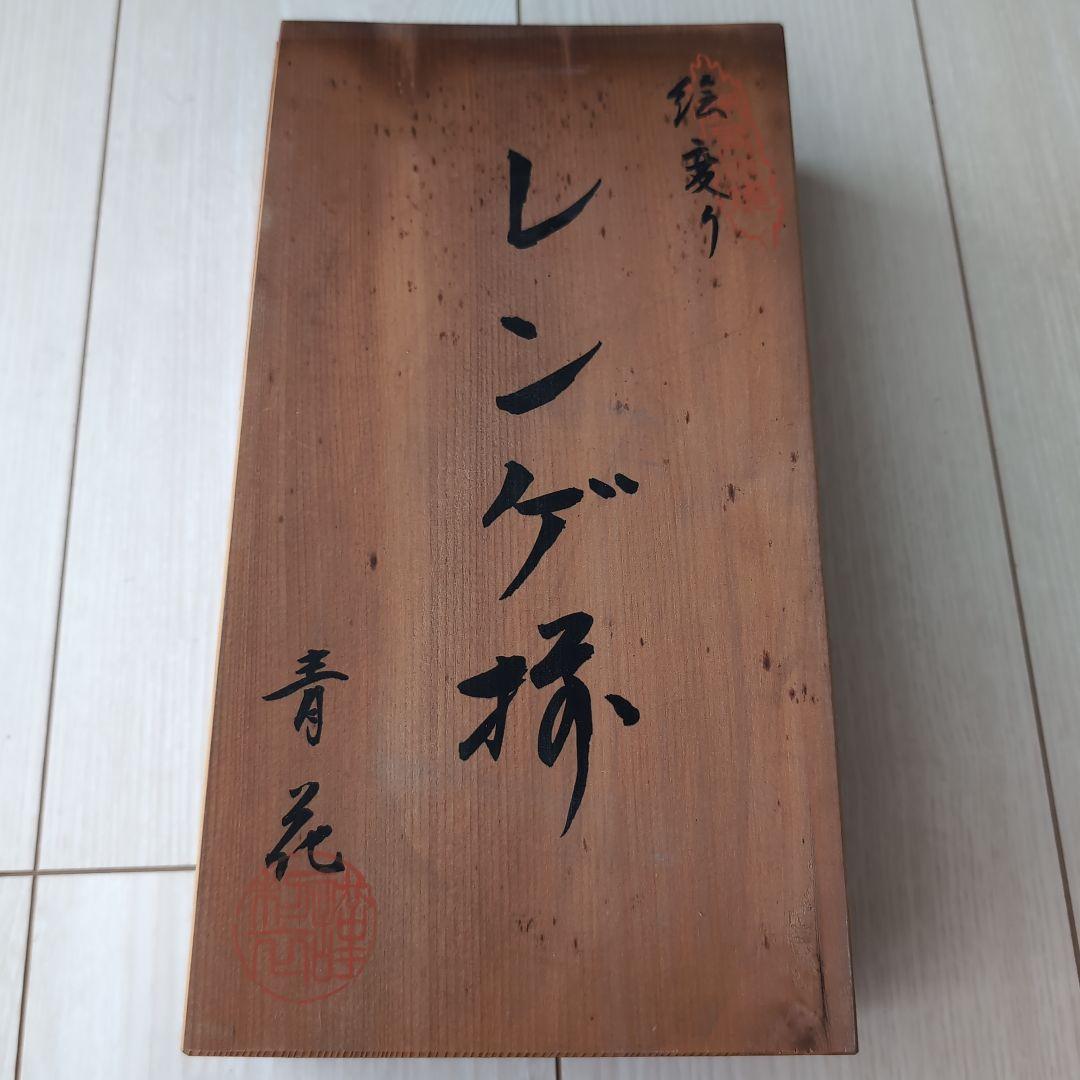 絵変り
レンゲ揃
青花